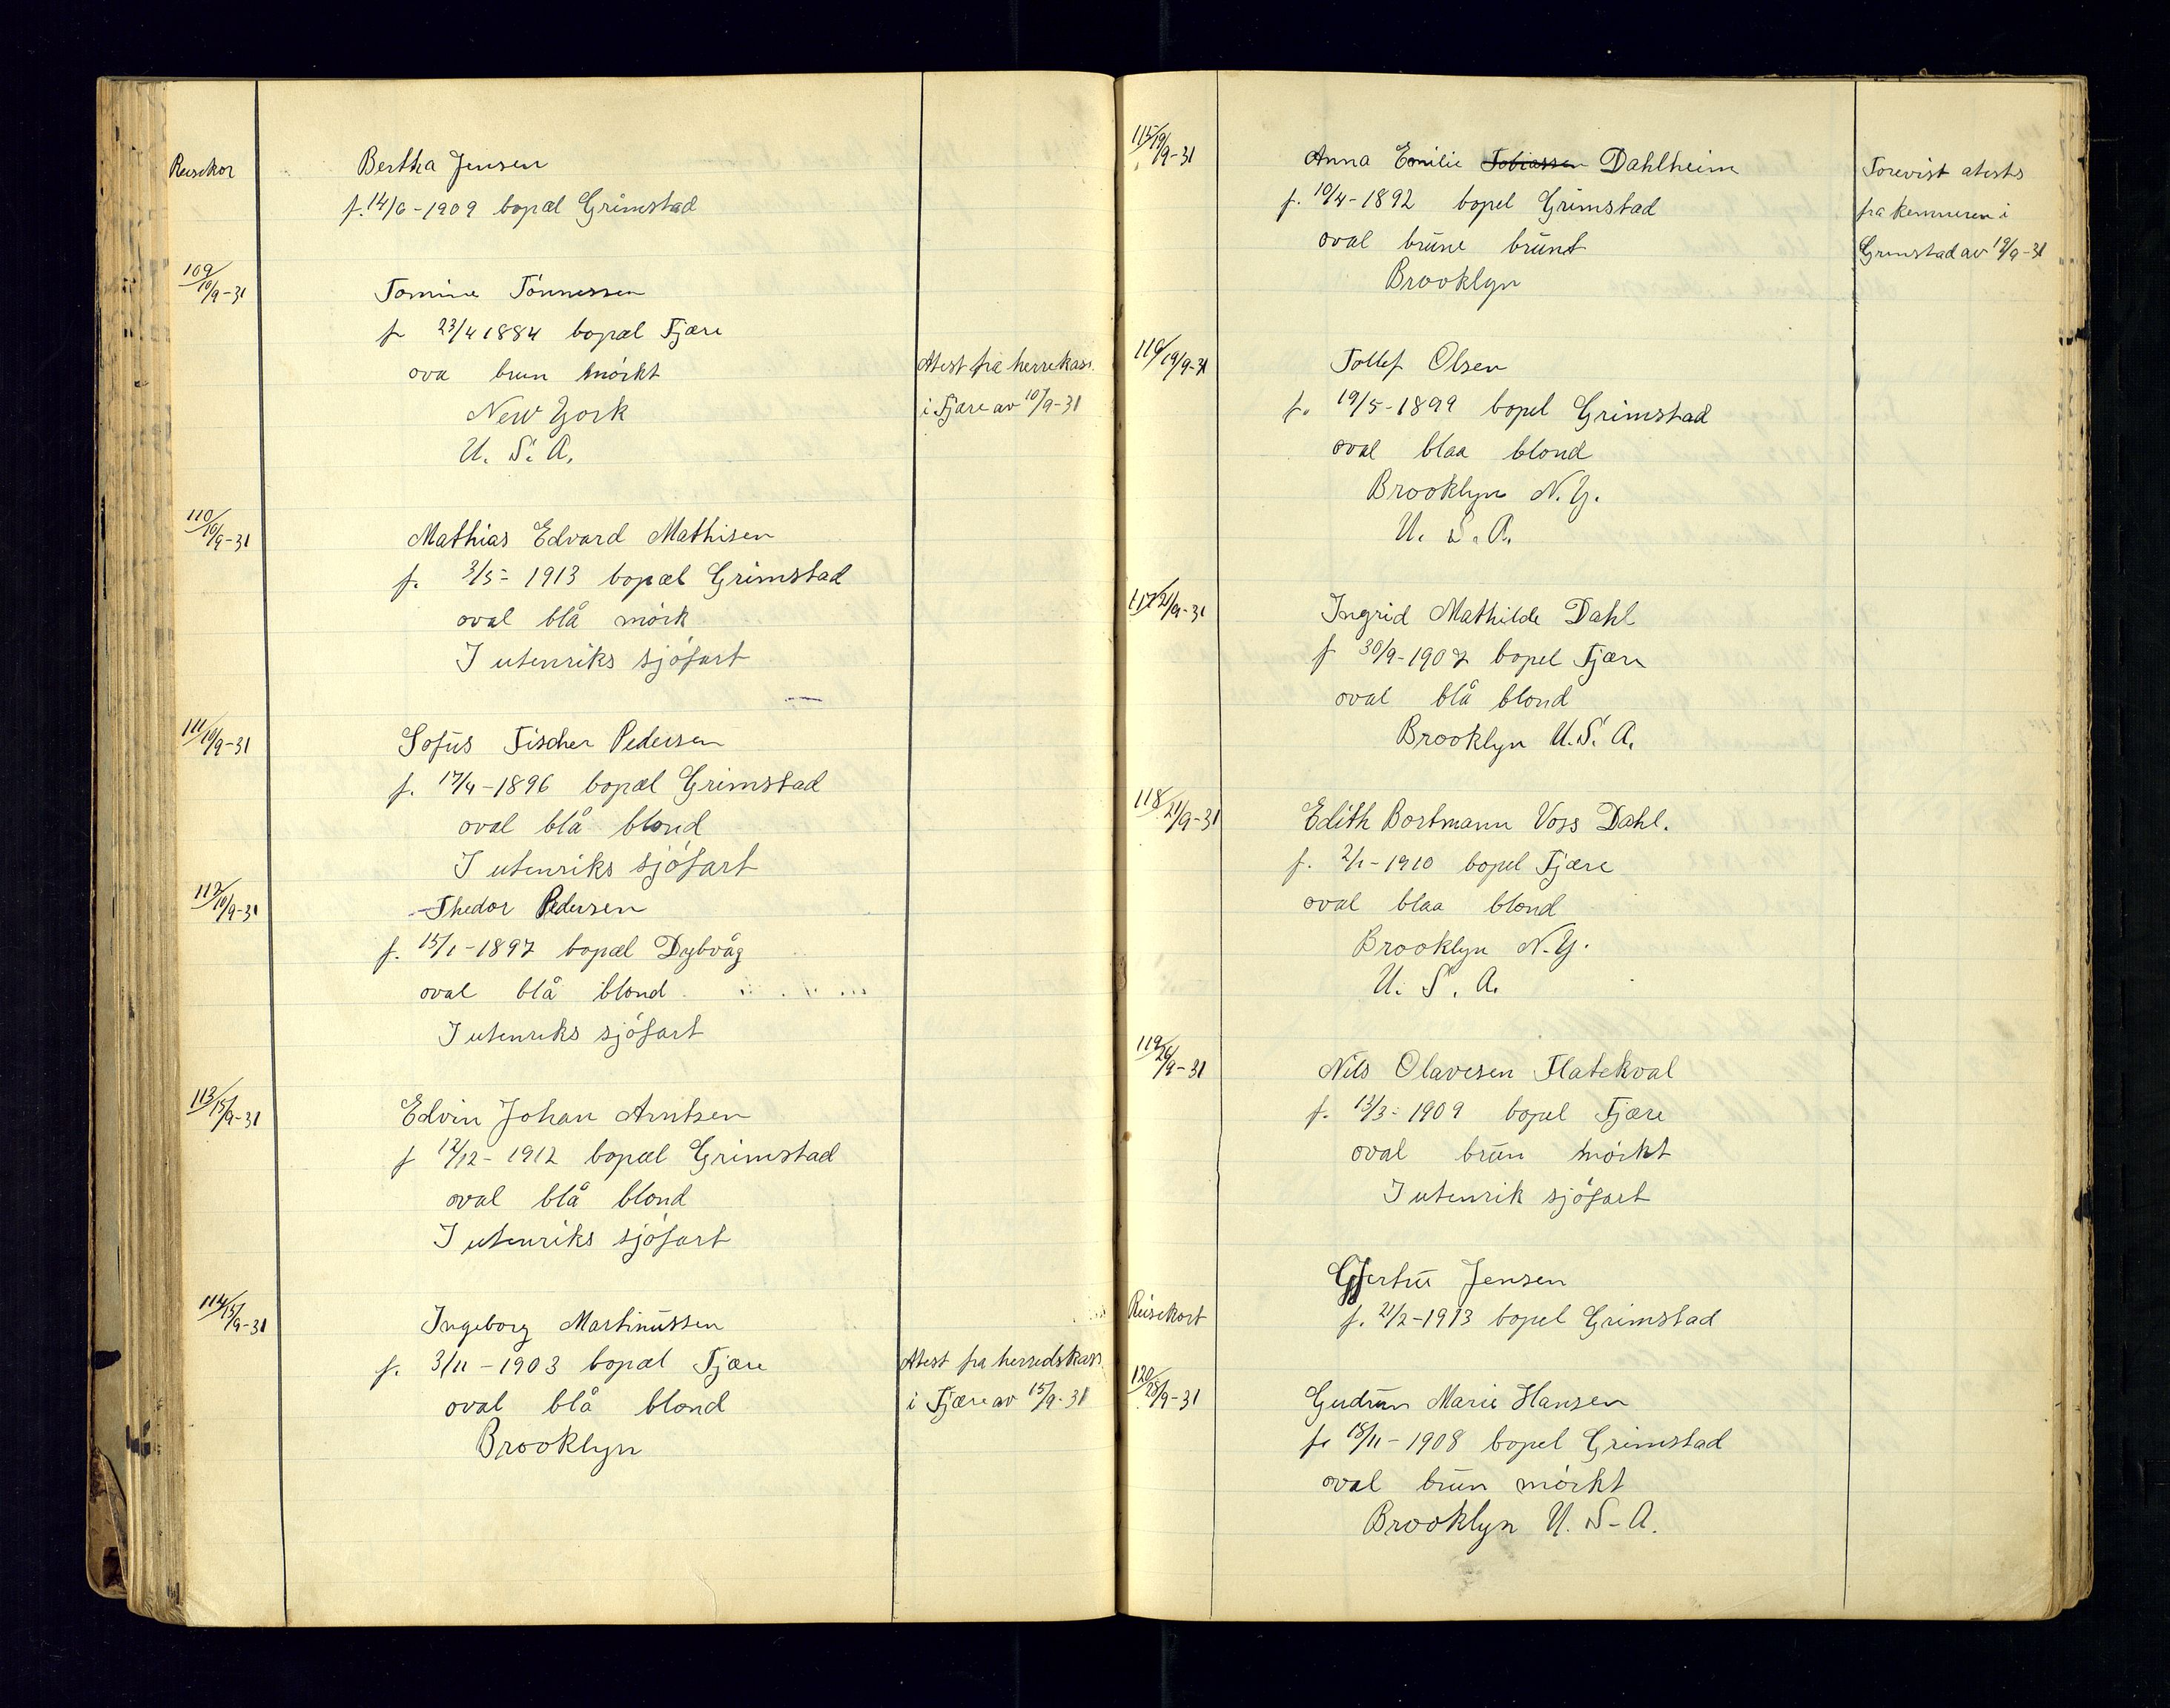 Reisekor
Bertha Jensen
f. 14/6 - 1909 bopæl Grimstad
109 10/9-31
Tomine Tönnessen
f 23/4 1884 bopæl Fjære
ova brun mörkt
New York
U. S. A.
Atest fra herrekass.
i Fjære av 10/9-31
110 10/9-31
Mathias Edvard Mathisen
f. 3/5 - 1913 bopæl Grimstad
oval blå mörk
I utenriks sjöfart
111 10/9-31
Sofus Fischer Pedersen
f. 17/4 - 1896 bopæl Grimstad
oval blå blond
I utenriks sjöfart
112 10/9-31
Thedor Pedersen
f. 15/1 - 1897 bopæl Dybvåg
oval blå blond
I utenriks sjöfart
113 15/9-31
Edvin Johan Arntsen
f 12/12 - 1912 bopæl Grimstad
oval blå blond
I utenriks sjöfart
114 15/9-31
Ingeborg Martinussen
f. 3/11 - 1903 bopæl Fjære
oval blå blond
Brooklyn
Atest fra herredskass.
i Fjære av 15/9-31
115 19/9-31
Anna Emilie Tobiassen Dahlheim
f. 10/4 - 1892 bopel Grimstad
oval brune brunt
Brooklyn
Forevist atests
fra kemneren i
Grimstad av 19/9-31
116 19/9-31
Tollef Olsen
f. 19/5 - 1899 bopel Grimstad
oval blaa blond
Brooklyn N.Y.
U. S. A.
117 21/9-31
Ingrid Mathilde Dahl
f 30/9 - 1907 bopel Fjære
oval blå blond
Brooklyn U. S. A.
118 21/9-31
Edith Bortmann Voss Dahl.
f. 2/1 - 1910 bopel Fjære
oval blaa blond
Brooklyn N.Y.
U. S. A.
119 26/9-31
Nils Olavesen Flatekval
f. 13/3 - 1909 bopel Fjære
oval brun mörkt
I utenrik sjöfart
Reisekort
Gjertru Jensen
f. 21/2 - 1913 bopel Grimstad
120 28/9-31
Gudrun Marie Hansen
f. 18/11 - 1908 bopel Grimstad
oval brun mörkt
Brooklyn U. S. A.